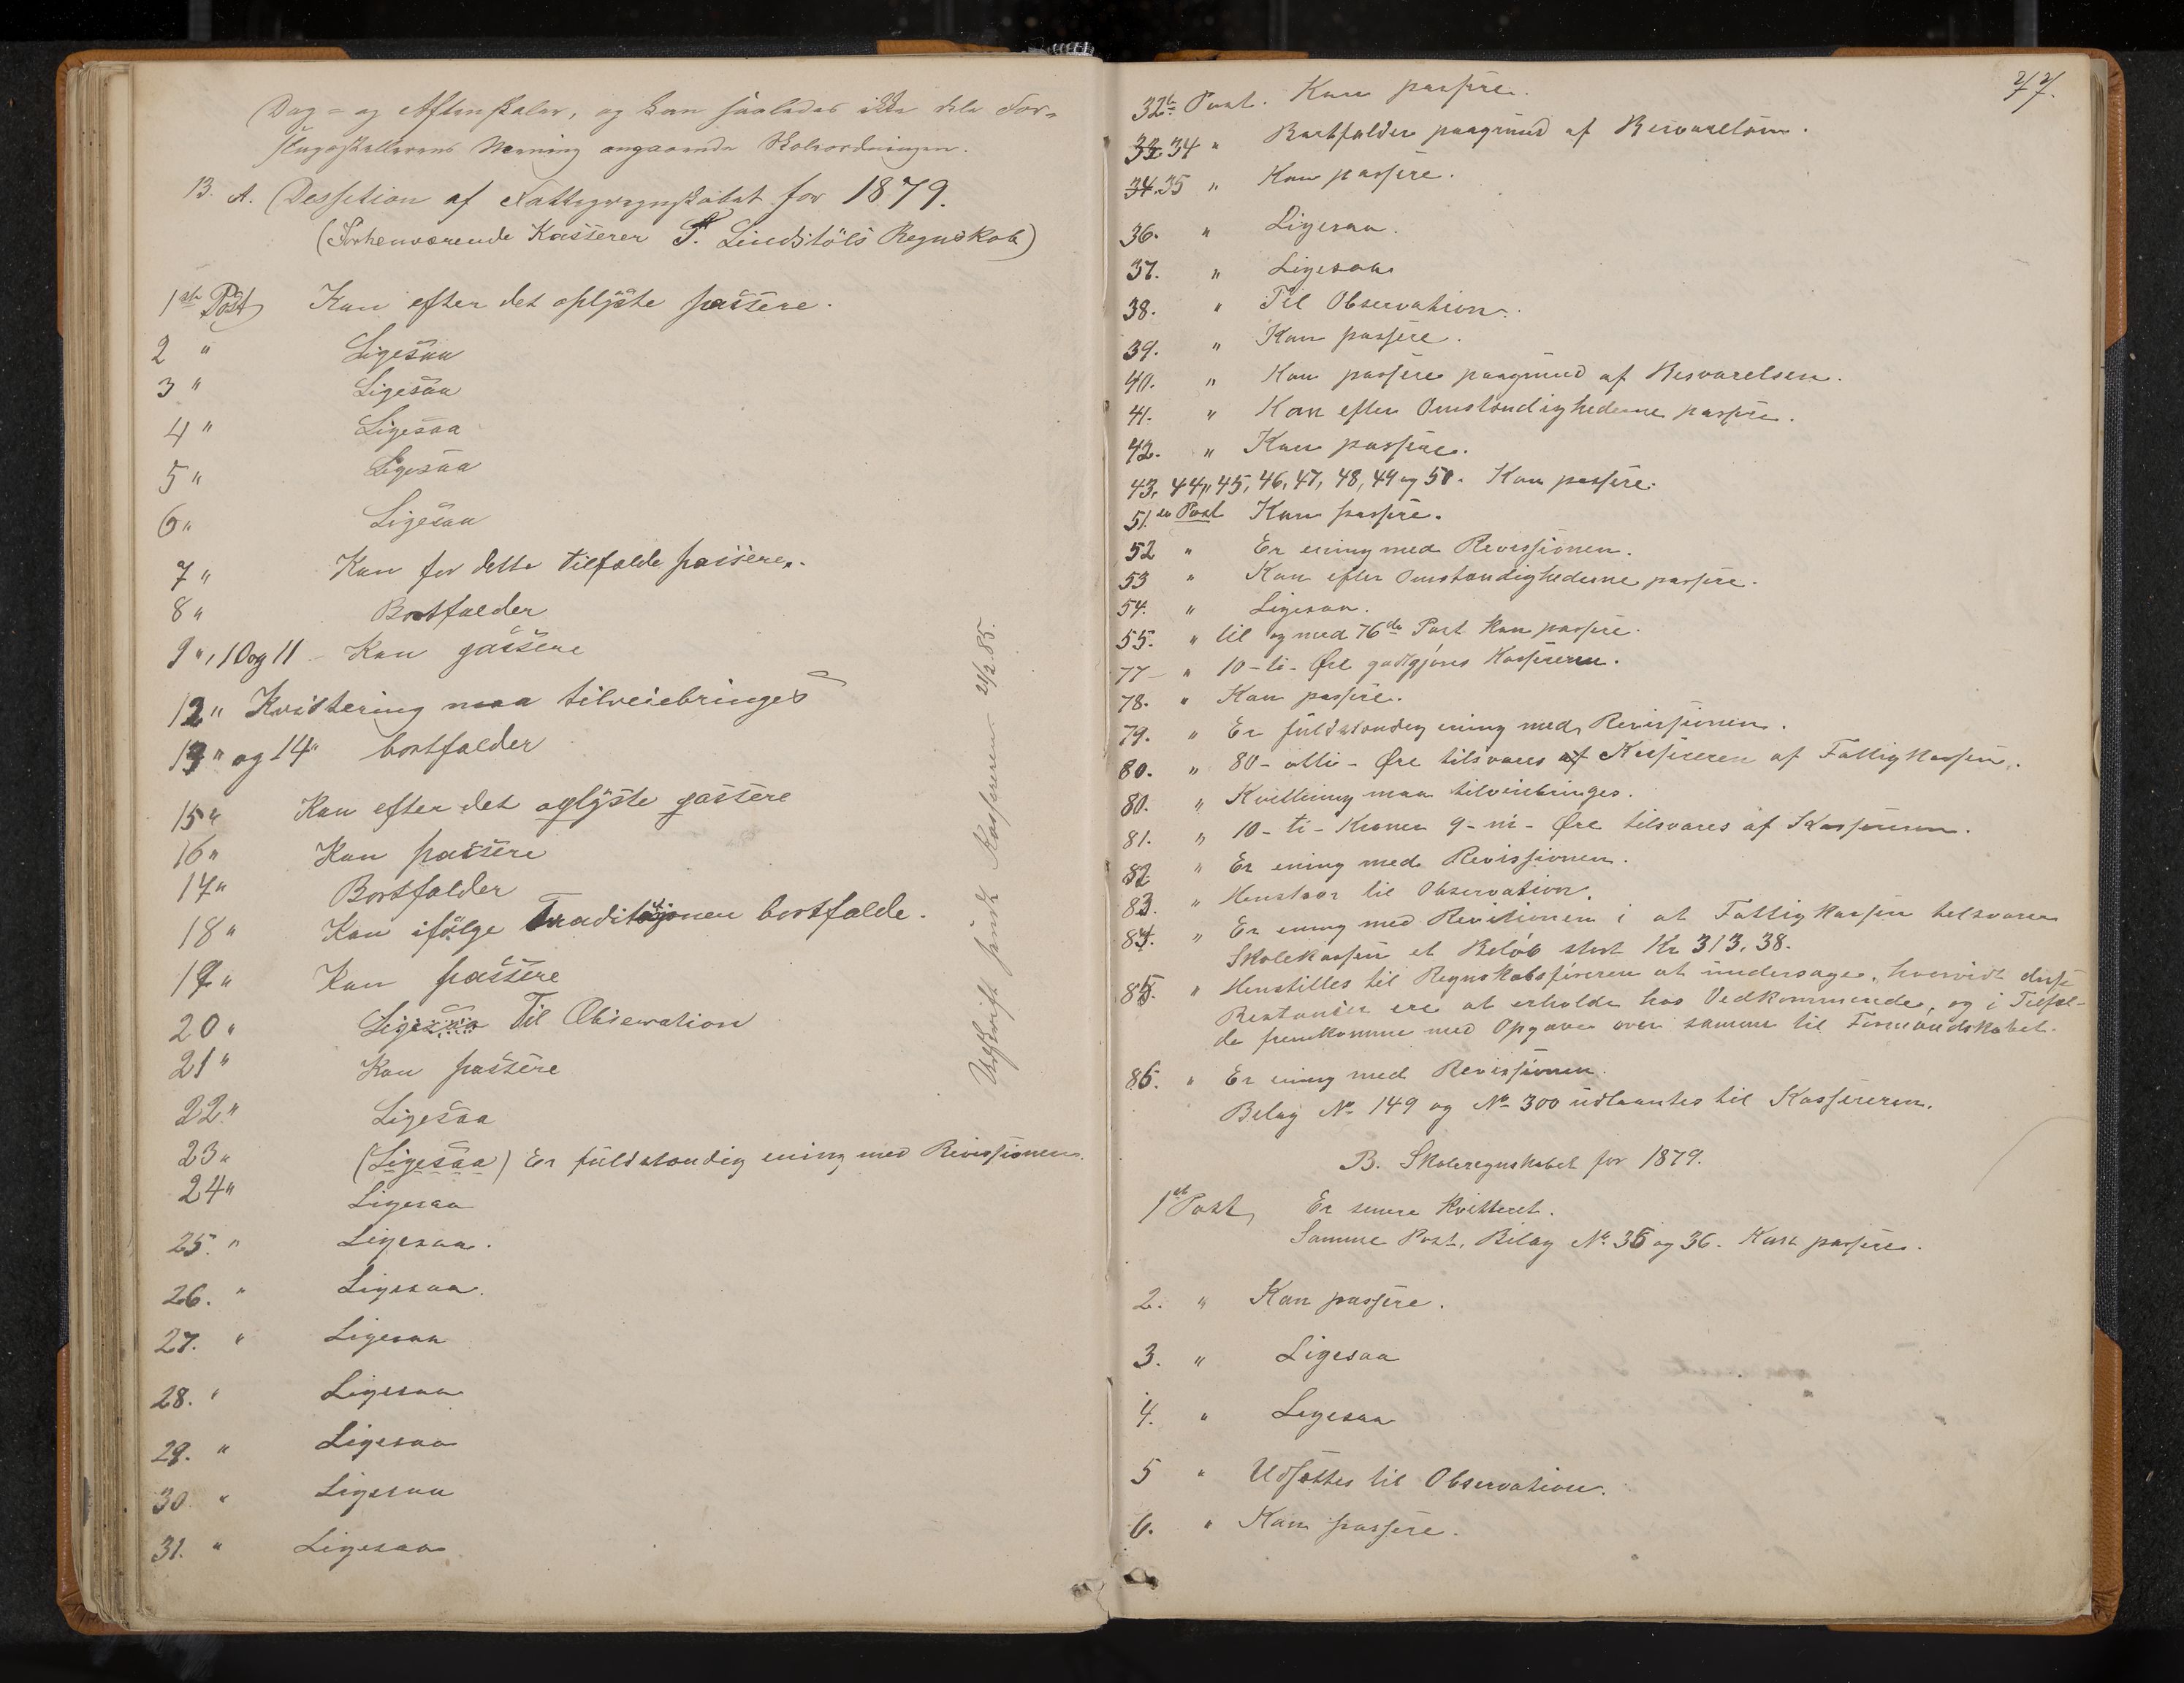 Dag- og Aftenskoler, og kan saaledes ikke dele For-
slagsstillerens Mening angaaende Skoleordningen.
B. A. Dessition af Fattigregnskabet for 1879.
(Forhenværende Kasserer P. Lindstöls Regnskab)
1ste Post Kan efter det oplÿste passere.
2 " Ligesaa
3 " Ligesaa
4 " Ligesaa
5 " Ligesaa
6 " Ligesaa
7 " Kan for dette Tilfælde passere.
8 " Bortfalder
9 ", 10 og 11 - Kan passere
12 " Kvittering maa tilveiebringes
13 " og 14 " bortfalder
15 " Kan efter det oplÿste passere
16 " Kan passere
17 " Bortfalder
18 " Kan ifölge Traditionen bortfalde.
19 " Kan passere
20 " Ligesaa Til Observation
21 " Kan passere
22 " Ligesaa
23 " (Ligesaa) Er fuldstændig enig med Revissionen.
24 " Ligesaa
25. " Ligesaa.
26. " Ligesaa.
27. " Ligesaa
28. " Ligesaa
29. " Ligesaa
30. " Ligesaa
31. " Ligesaa
Udskrift sendt Kassereren 21/2 85.
77.
32te Post. Kan passere.
33. 34 " Bortfalder paagrund af Besvarelsen.
34. 35 " Kan passere.
36. " Ligesaa.
37. " Ligesaa
38. " Til Observation.
39. " Kan passere.
40. " Kan passere paagrund af Besvarelsen.
41. " Kan efter Omstændighederne passere.
42. " Kan passere.
43, 44, 45, 46, 47, 48, 49 og 50. Kan passere.
51. te Post Kan passere.
52 " Er enig med Revissionen.
53 " Kan efter Omstændighederne passere.
54. " Ligesaa.
55. " til og med 76de Post kan passere.
77 - " 10 - ti - Øre godtgjøres Kassereren.
78. " Kan passere.
79. " Er fuldstændig enig med Revissionen.
80. " 80 - otti - Øre tilsvares af Kassereren af Fattigkassen.
80. " Kvittering maa tilveiebringes.
81. " 10 - ti - Kroner 9 - ni - Øre tilsvares af Kassereren.
82 " Er enig med Revissionen.
83. " Henstaar til Observation.
84. " Er enig med Revitionen i at Fattigkassen tilsvarer
Skolekassen et Beløb stort Kr 313,38.
85. " Henstilles til Regnskabsføreren at undersøge, hvorvidt disse
Restancer ere at erholde hos Vedkommende, og i Tilfæl-
de fremkomme med Opgave over samme til Formandskabet.
86. " Er enig med Revissionen.
Belag No 149 og No 300 udlaantes til Kassereren.
B. Skoleregnskabet for 1879.
1ste Post Er senere kvitteret.
Samme Post, Bilag No 35 og 36. Kan passere.
2. " Kan passere.
3. " Ligesaa
4. " Ligesaa
5 " Udsættes til Observation.
6. " Kan passere.